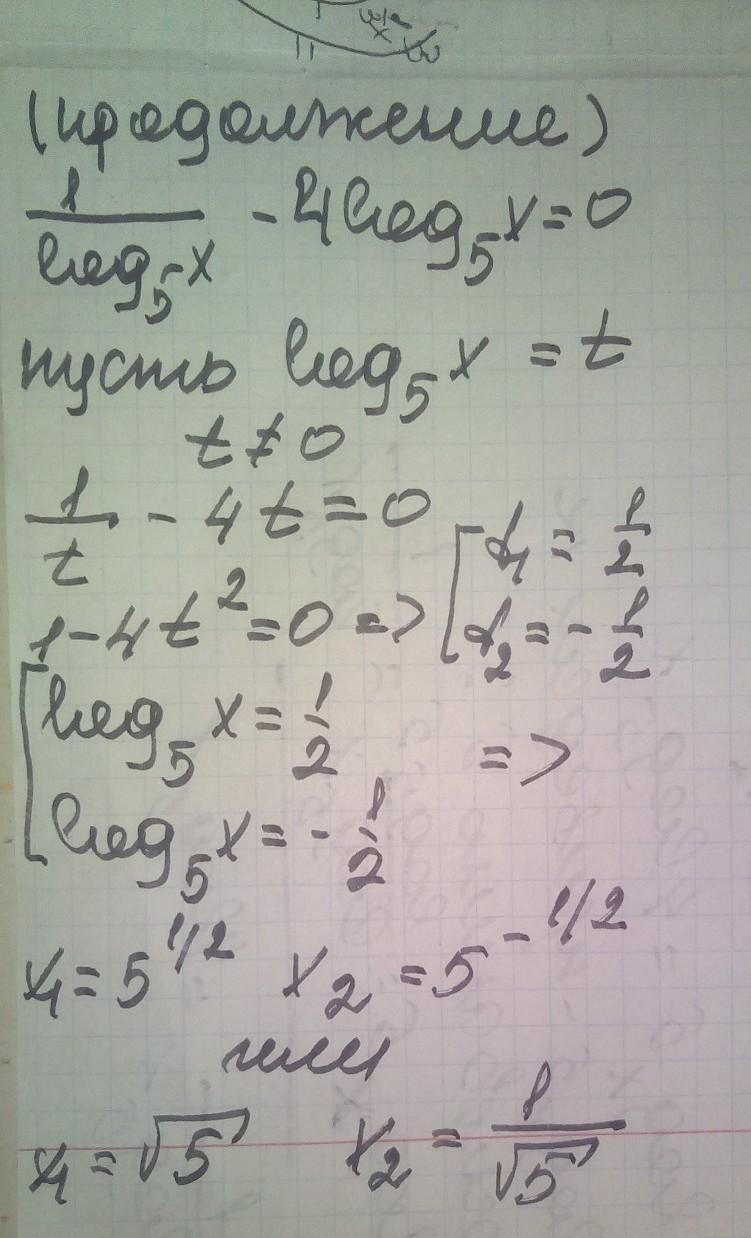 (продолжение)
1/log₅x - 4log₅x = 0
пусть log₅x = t
t ≠ 0
1/t - 4t = 0
1 - 4t² = 0 => [ t₁ = 1/2
t₂ = - 1/2
[ log₅x = 1/2
=>
log₅x = - 1/2
x₁ = 5^1/2 x₂ = 5^-1/2
или
x₁ = √5 x₂ = 1/√5